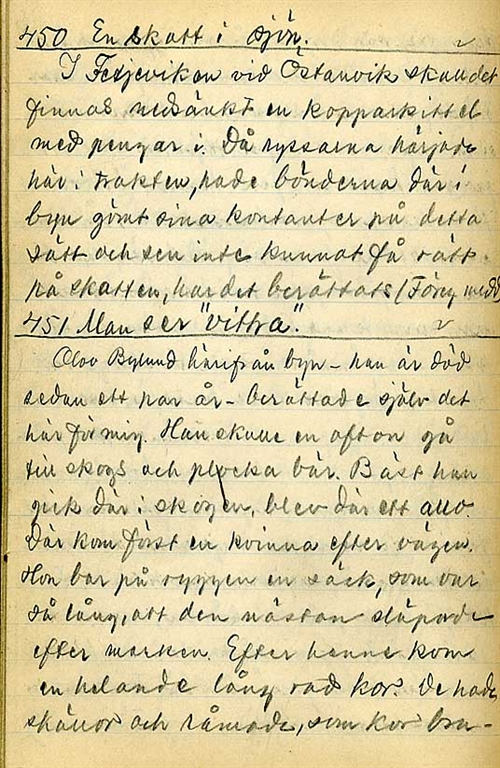 450 En skatt i sjön.
I Fetjeviken vid Östanvik skall det
finnas nedsänkt en kopparkittel
med pengar i. Då ryssarna härjade
här i trakten, hade bönderna där i
byn gömt sina kontanter på detta
sätt och sen inte kunnat få rätt
på skatten, har det berättats (Föreg. medd
451 Man ser "vittra".
Olov Bylund härifrån byn - han är död
sedan ett par år - berättade själv det
här för mig. Han skulle en afton gå
till skogs och plocka bär. Bäst han
gick där i skogen, blev där ett allo.
Där kom först en kvinna efter vägen.
Hon bar på ryggen en säck, som var
så lång, att den nästan släpade
efter marken. Efter henne kom
en helande lång rad kor. De hade
skällor och råmade, som kor bru-